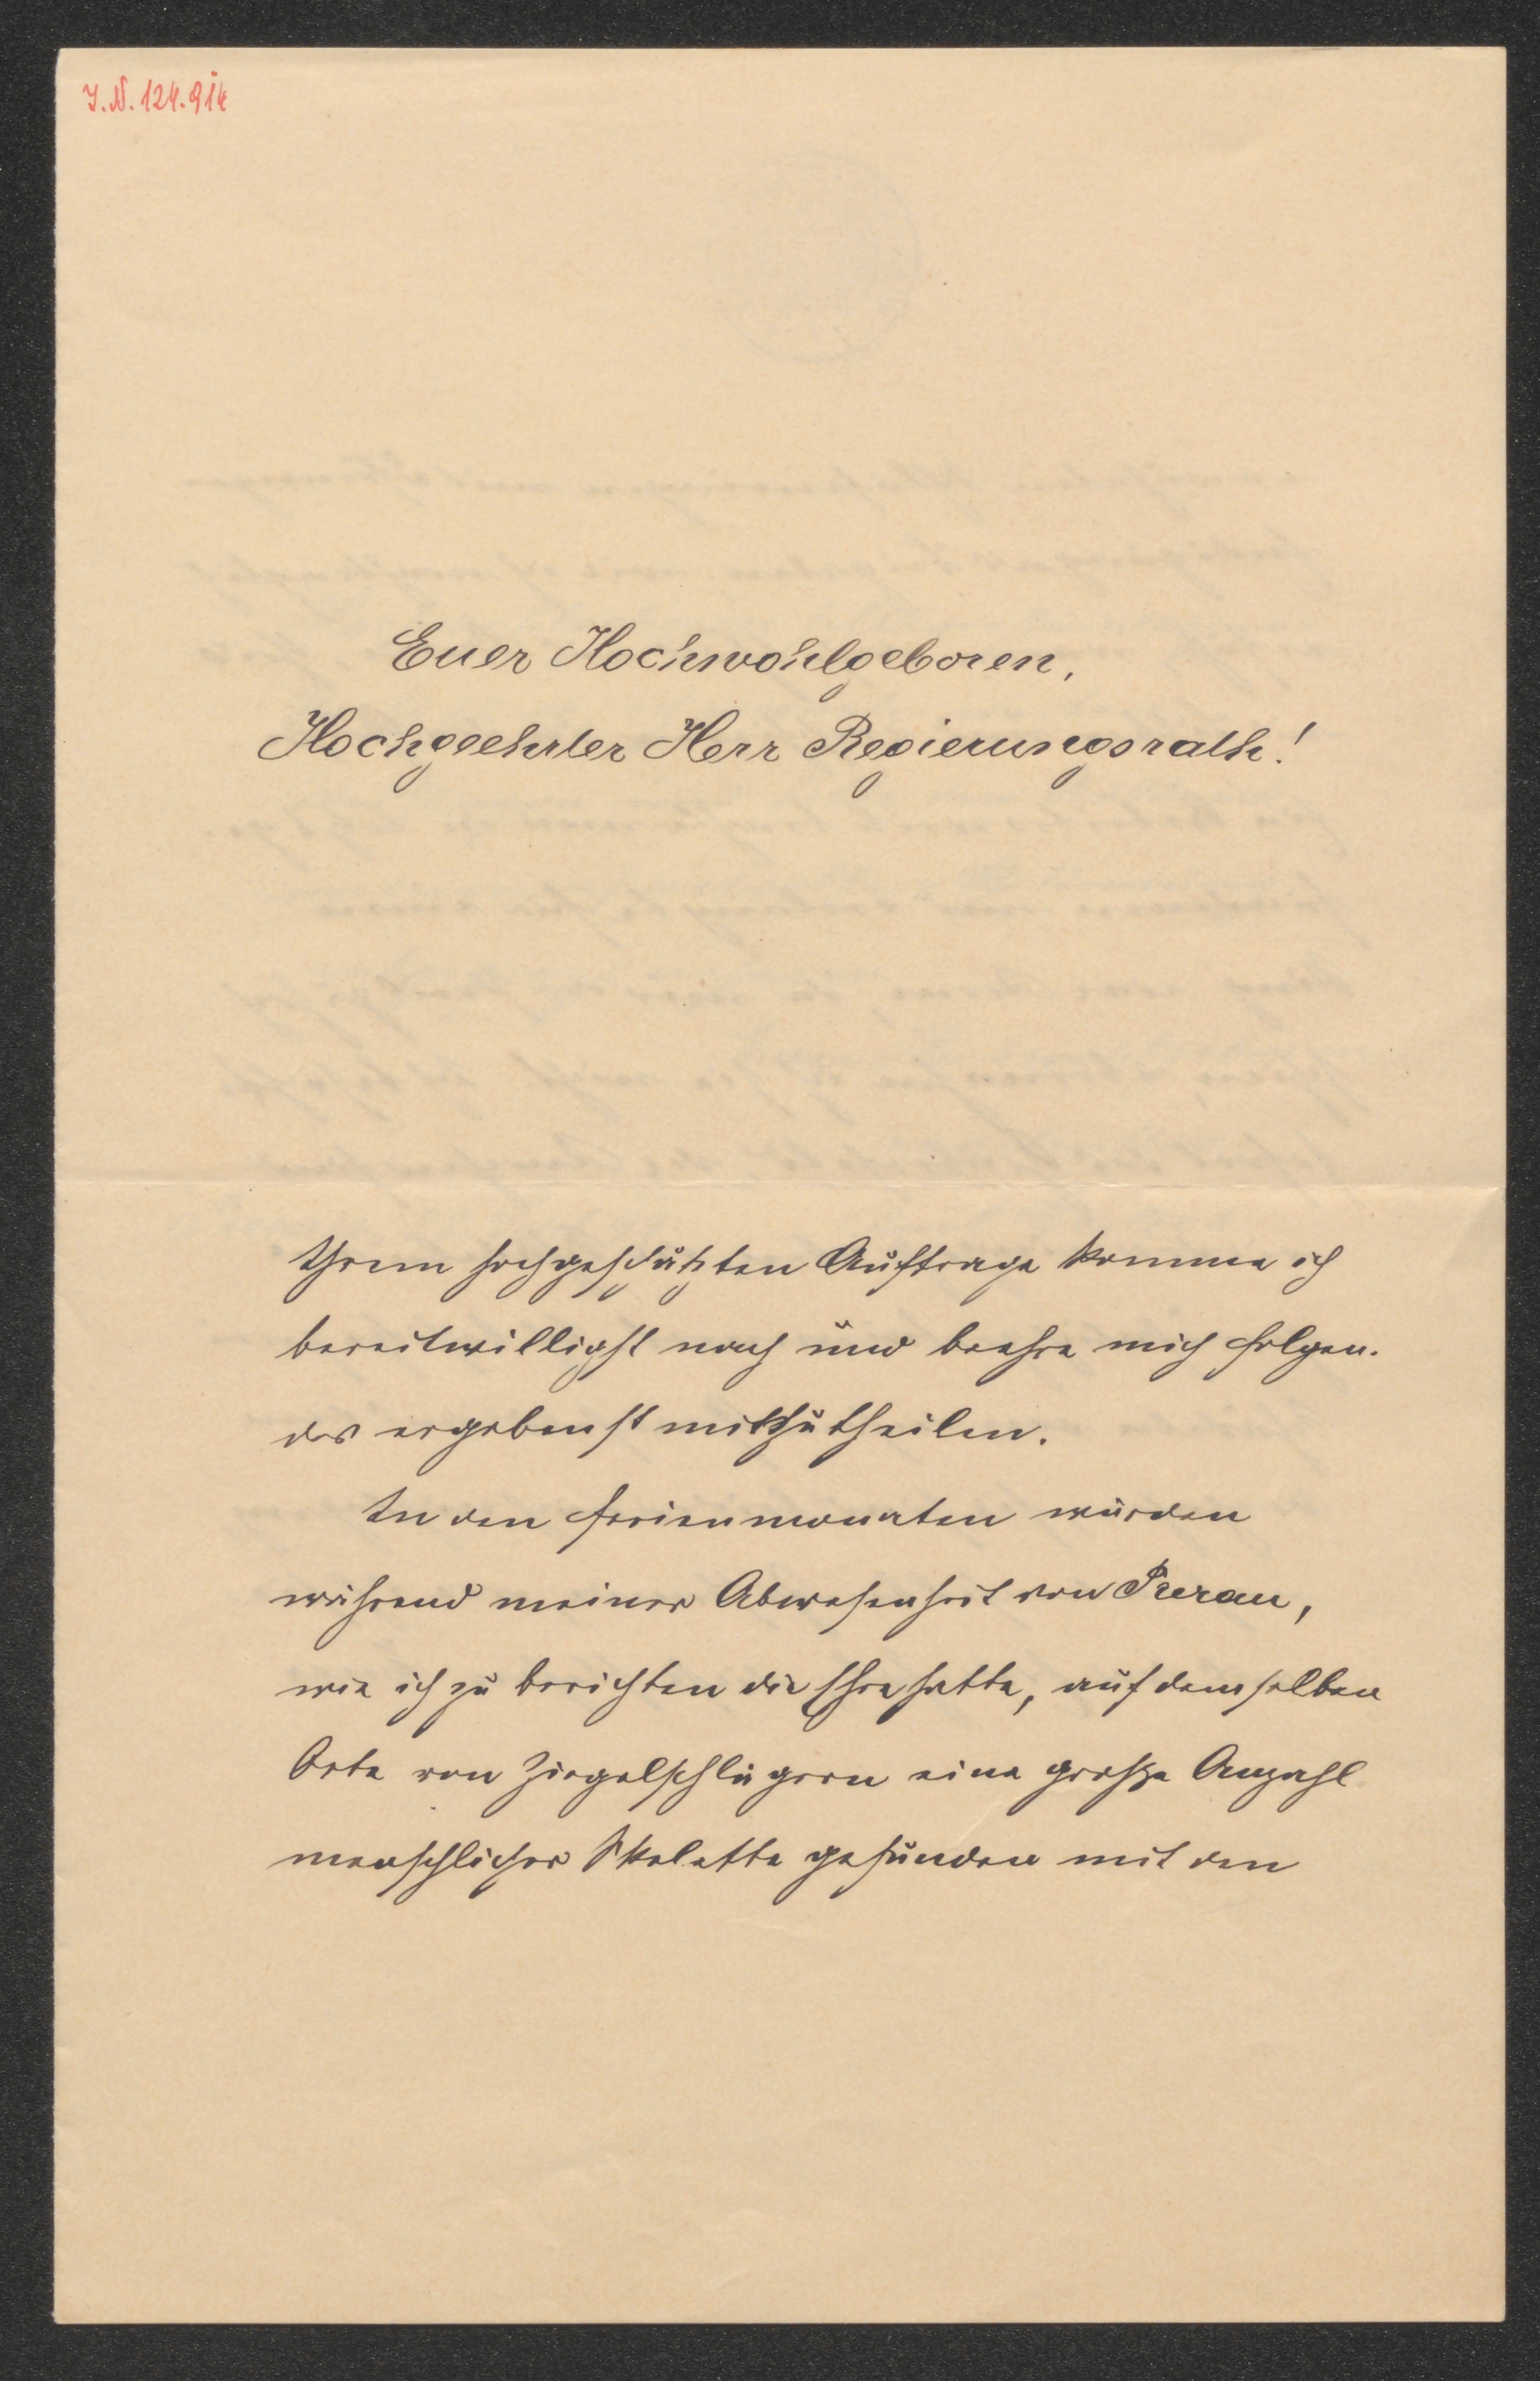 J.N. 124.914
Euer Hochwohlgeboren,
Hochgeehrter Herr Regierungsrath!
Ihrem hochgeschätzten Auftrage komme ich
bereitwilligst nach und beehre mich folgen-
des ergebenst mitzutheilen.
In den Ferienmonaten wurden
während meiner Abwesenheit von Prerau,
wie ich zu berichten die Ehre hatte, auf demselben
Orte von Ziegelschlägern eine große Anzahl
menschlicher Skelette gefunden mit den